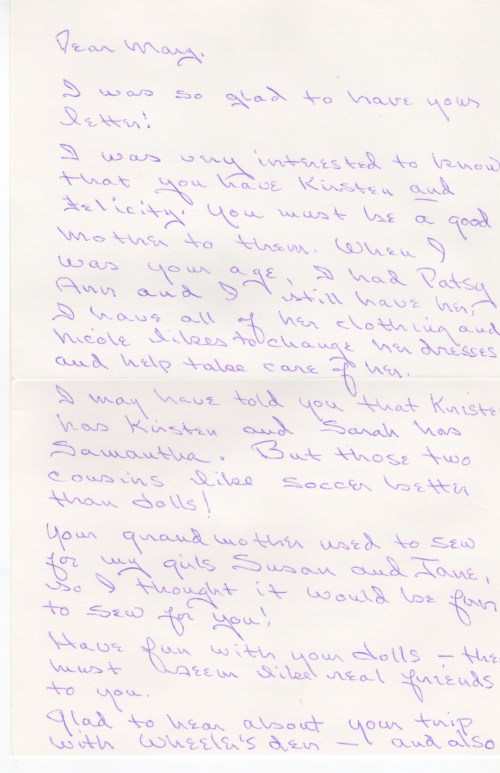 Dear Mary.
I was so glad to have your
letter!
I was very interested to know
that you have Kirsten and
Felicity. You must be a good
mother to them. When I
was your age, I had Patsy
Ann and I still have her,
I have all of her clothing and
Nicole likes to change her dresses
and help take care of her.
I may have told you that Kriste
has Kirsten and Sarah has
Samantha. But those two
cousins like soccer better
than dolls!
Your grandmother used to sew
for my girls Susan and Jane,
so I thought it would be fun
to sew for you!
Have fun with your dolls – the
must seem like real friends
to you.
Glad to hear about your trip
with Wheeler's den – and also